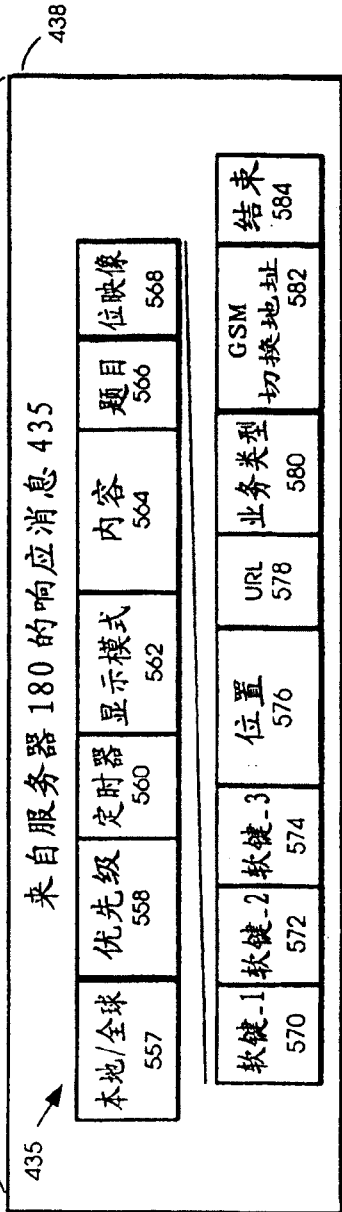 438
来自服务器180的响应消息435
435
本地/全球
557
优先级
558
定时器
560
显示模式
562
内容
564
题目
566
位映像
568
软键-1
570
软键-2
572
软键-3
574
位置
576
URL
578
业务类型
580
GSM
切换地址
582
结束
584